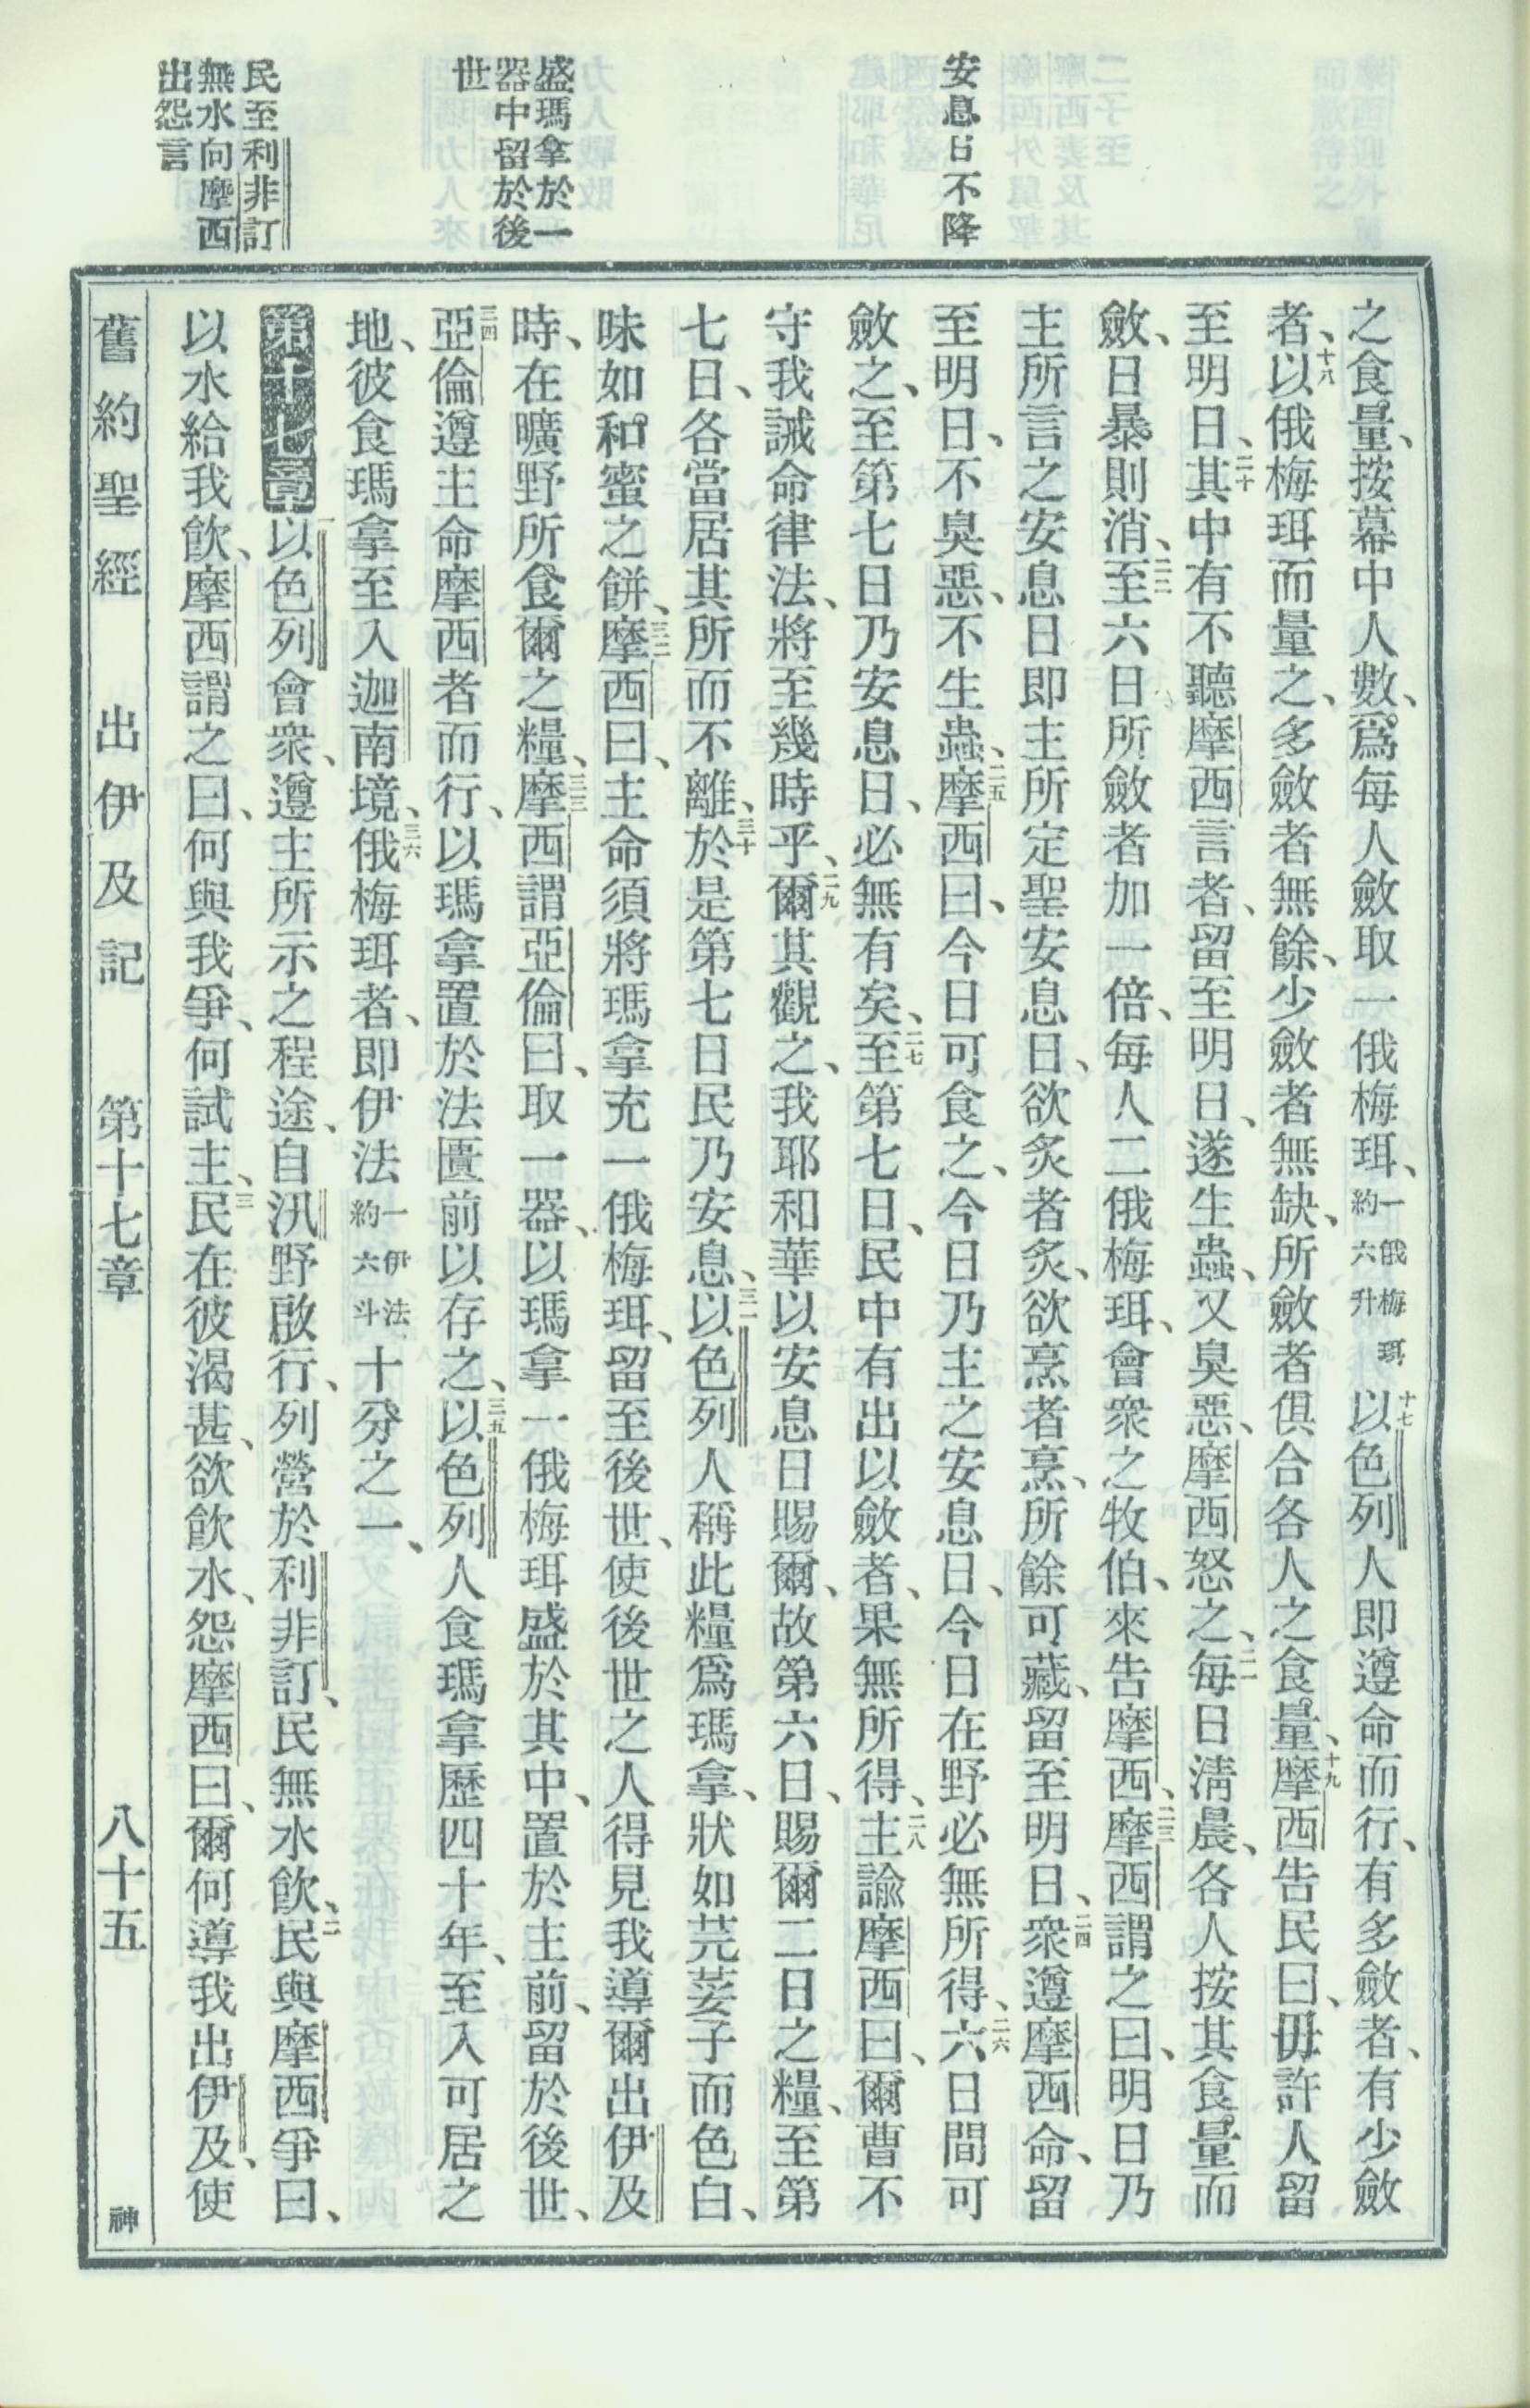 安息日不降
盛瑪拿於一
器中留於後
世
民至利非訂
無水向摩西
出怨言
之食量、按幕中人數、爲每人斂取一俄梅珥、一俄梅珥約六升十七以色列人即遵命而行、有多斂者、有少斂
者、十八以俄梅珥而量之、多斂者無餘、少斂者無缺、所斂者俱合各人之食量、十九摩西告民曰、毋許人留
至明日、二十其中有不聽摩西言者、留至明日、遂生蟲、又臭惡、摩西怒之、二一每日淸晨、各人按其食量而
斂、日暴則消、二二至六日所斂者加一倍、每人二俄梅珥、會衆之牧伯、來告摩西、二三摩西謂之曰、明日乃
主所言之安息日即主所定聖安息日、欲炙者炙、欲烹者烹、所餘可藏、留至明日、二四衆遵摩西命、留
至明日、不臭惡、不生蟲、二五摩西曰、今日可食之、今日乃主之安息日、今日在野必無所得、二六六日間可
斂之、至第七日乃安息日、必無有矣、二七至第七日、民中有出以斂者、果無所得、二八主諭摩西曰、爾曹不
守我誡命律法、將至幾時乎、二九爾其觀之、我耶和華以安息日賜爾、故第六日、賜爾二日之糧、至第
七日、各當居其所而不離、三十於是第七日民乃安息、三一以色列人稱此糧爲瑪拿、狀如芫荽子而色白、
味如和蜜之餅、三二摩西曰、主命須將瑪拿充一俄梅珥、留至後世、使後世之人得見我導爾出伊及
時、在曠野所食爾之糧、三三摩西謂亞倫曰、取一器、以瑪拿一俄梅珥盛於其中、置於主前、留於後世、
三四亞倫遵主命摩西者而行、以瑪拿置於法匱前以存之、三五以色列人食瑪拿歷四十年、至入可居之
地、彼食瑪拿至入迦南境、三六俄梅珥者、即伊法一伊法約六斗十分之一、
第十七章一以色列會衆、遵主所示之程途、自汛野啟行、列營於利非訂、民無水飮、二民與摩西爭曰、
以水給我飮、摩西謂之曰、何與我爭、何試主、三民在彼渴甚、欲飮水、怨摩西曰、爾何導我出伊及、使
舊約聖經　出伊及記　第十七章　八十五　神